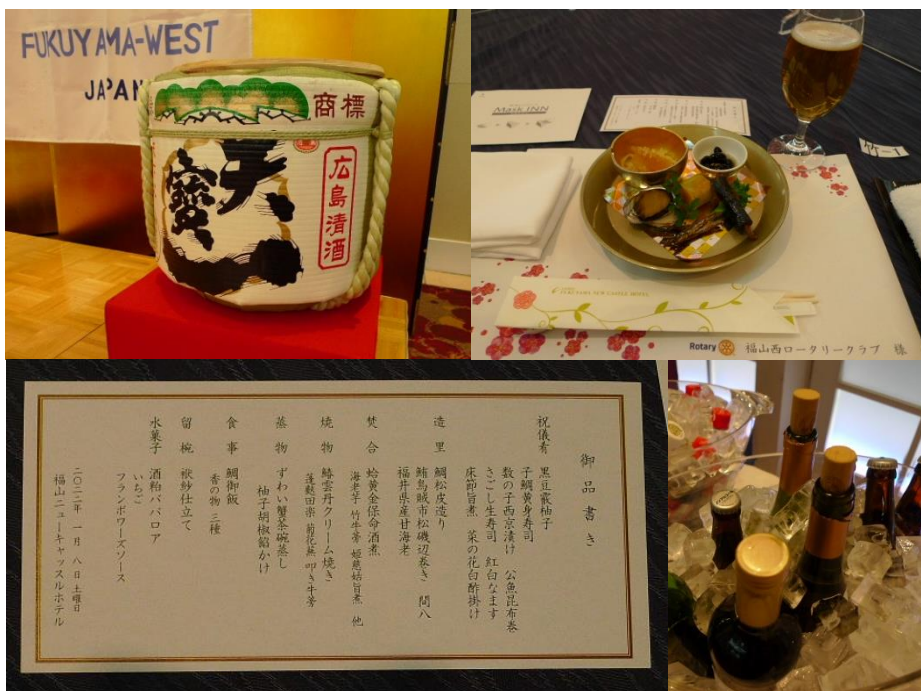 FUKUYAMA-WEST
JAPAN
商標
天寶一
広島清酒
MaIK INN
竹-1
FUKUYAMA NEW CASTLE HOTEL
Rotary 福山西ロータリークラブ 様
御品書き
祝儀肴 黒豆蜜柚子
子鯛黄身寿司
数の子西京漬け 公魚昆布巻
さごし生寿司 紅白なます
床節旨煮 菜の花白酢掛け
造里 鯛松皮造り
鮪鳥賊市松磯辺巻き 間八
福井県産甘海老
焚合 蛤黄金保命酒煮
海老芋 竹牛蒡 姫慈姑旨煮 他
焼物 鰆雲丹クリーム焼き
蓬麩田楽 菊花蕪 叩き牛蒡
蒸物 ずわい蟹茶碗蒸し
柚子胡椒餡かけ
食事 鯛御飯
香の物 三種
留椀 袱紗仕立て
水菓子 酒粕ババロア
いちご
フランボワーズソース
二〇二二年 一月 八日 土曜日
福山ニューキャッスルホテル